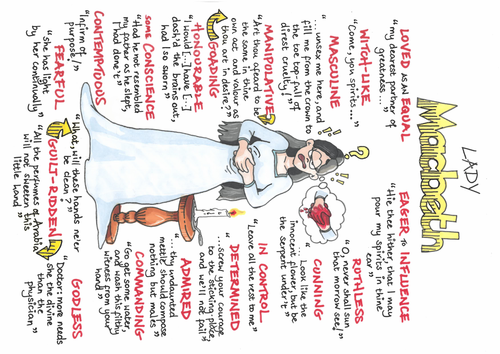 LADY
Macbeth
LOVED as an EQUAL
"my dearest partner of
greatness..."
WITCH-LIKE
"Come, you spirits..."
MASCULINE
"... unsex me here, and
fill me from the crown to
the toe top-full of
direst cruelty!"
MANIPULATIVE
"Art thou afeard to be
the same in thine
own act and valour as
thou art in desire?"
GOADING
HONOURABLE
"I would [...] have [...]
dash'd the brains out,
had I so sworn"
some CONSCIENCE
"Had he not resembled
my father as he slept,
I had done't"
CONTEMPTUOUS
"Infirm of
purpose!"
FEARFUL
"she has light
by her continually"
EAGER to INFLUENCE
"Hie thee hither, that I may
pour my spirits in thine
ear"
RUTHLESS
"O, never shall sun
that morrow see!"
CUNNING
"... Look like the
innocent flower, but be
the serpent under't"
IN CONTROL
"Leave all the rest to me"
DETERMINED
"...screw your courage
to the sticking place
and we'll not fail"
ADMIRED
"...thy undaunted
mettle should compose
nothing but males"
COMMANDING
"Go get some water,
and wash this filthy
witness from your
hand"
GODLESS
"More needs
she the divine
than the
physician"
Doctor:
"What, will these hands ne'er
be clean?"
GUILT-RIDDEN
"All the perfumes of Arabia
will not sweeten this
little hand"